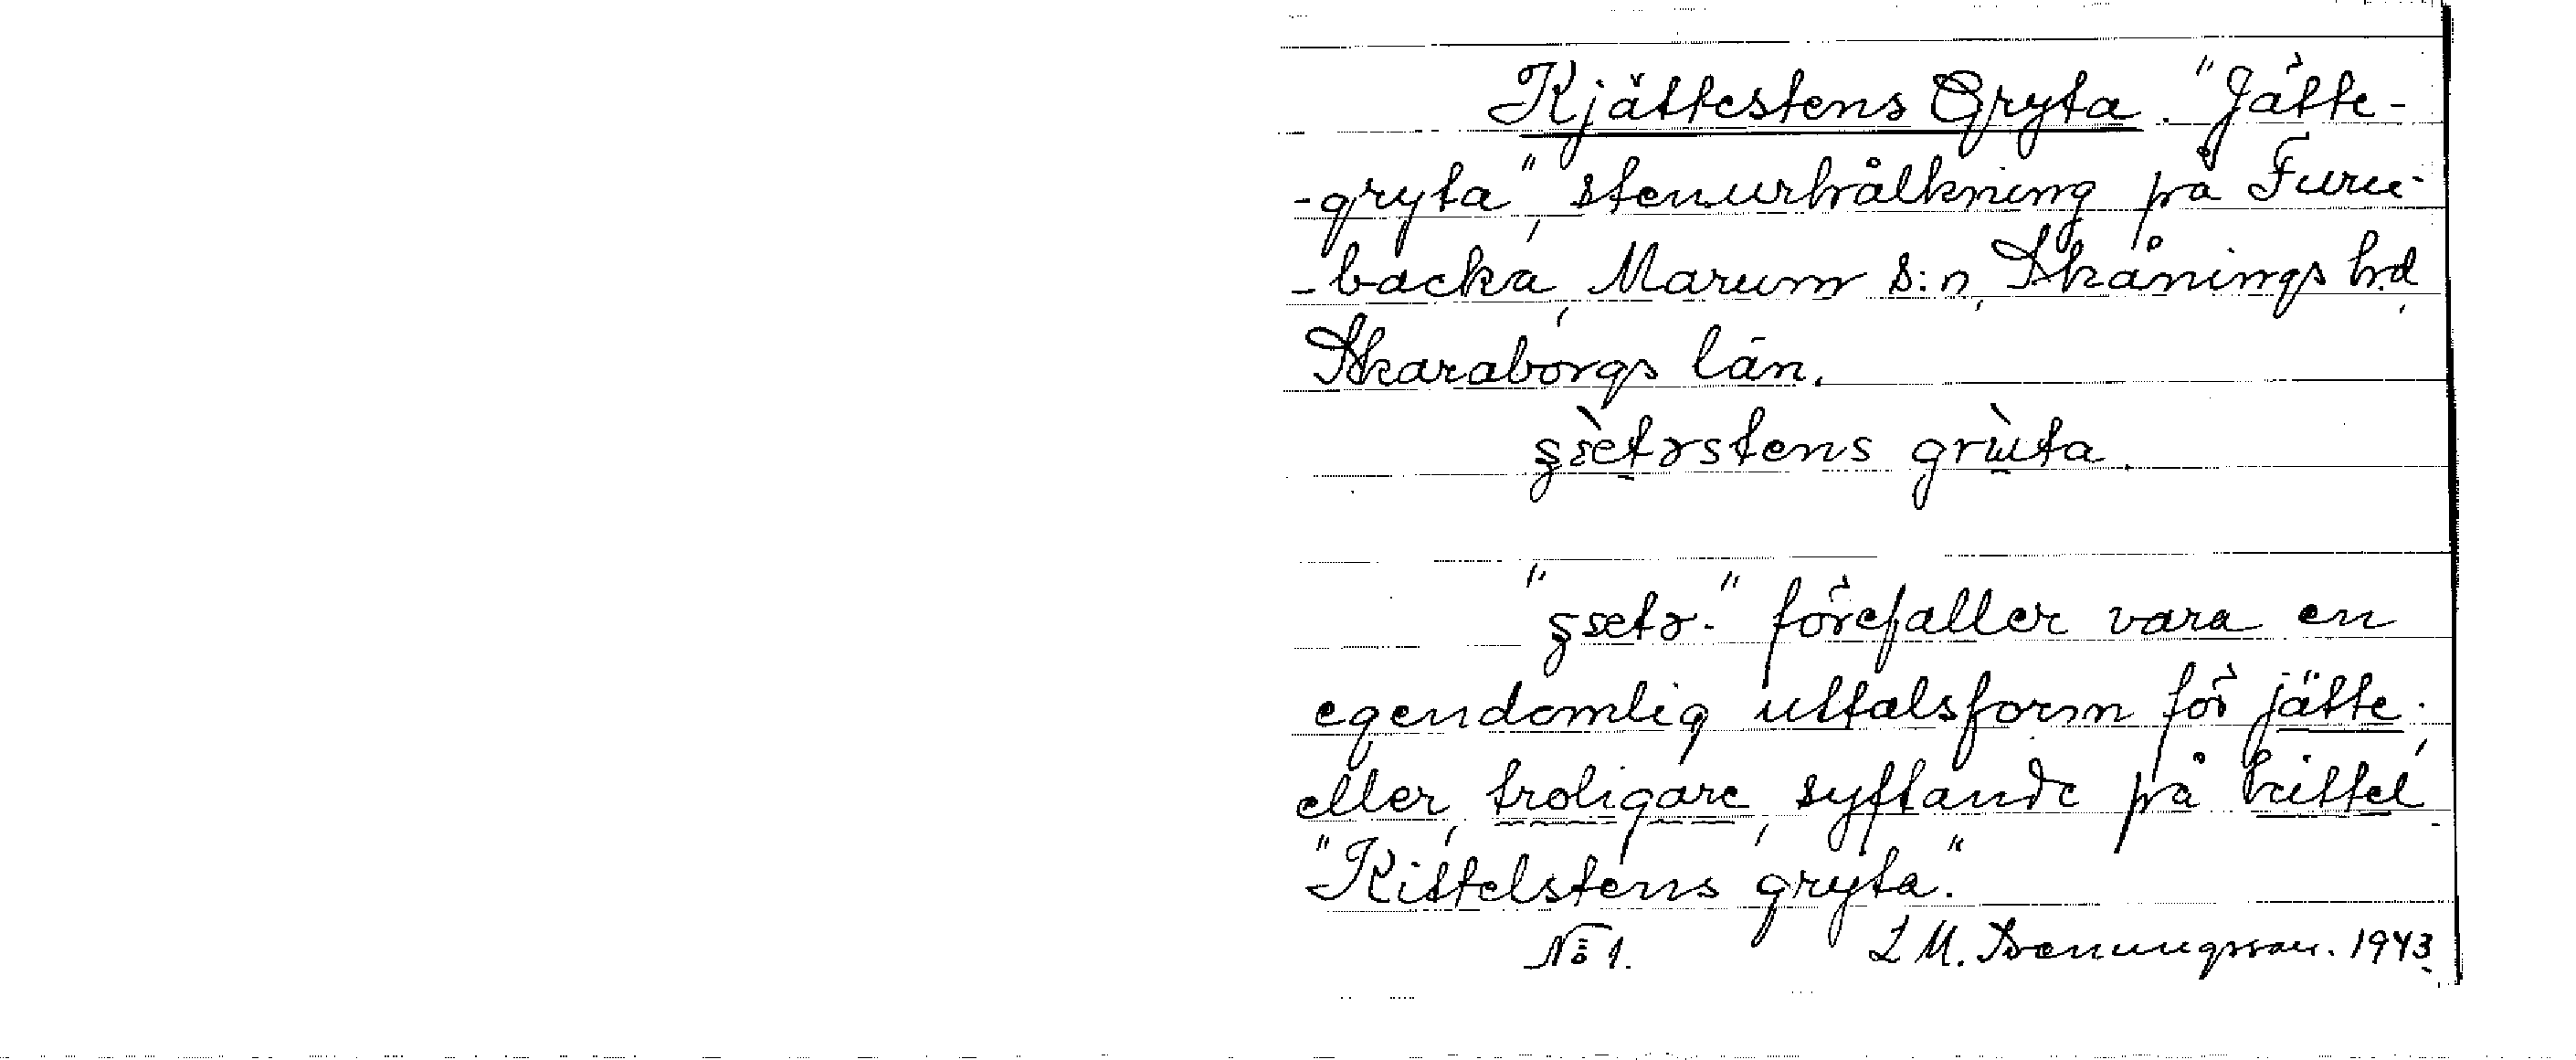 Kjättestens Gryta. "Jätte-
-gryta", stenurhålkning på Furu-
-backa, Marum s:n, Skånings hd,
Skaraborgs län.
grùta.
förefaller vara en
egendomlig uttalsform för jätte;
eller, troligare, syftande på kittel
"Kittelstens gryta."
No 1. L M. 1943